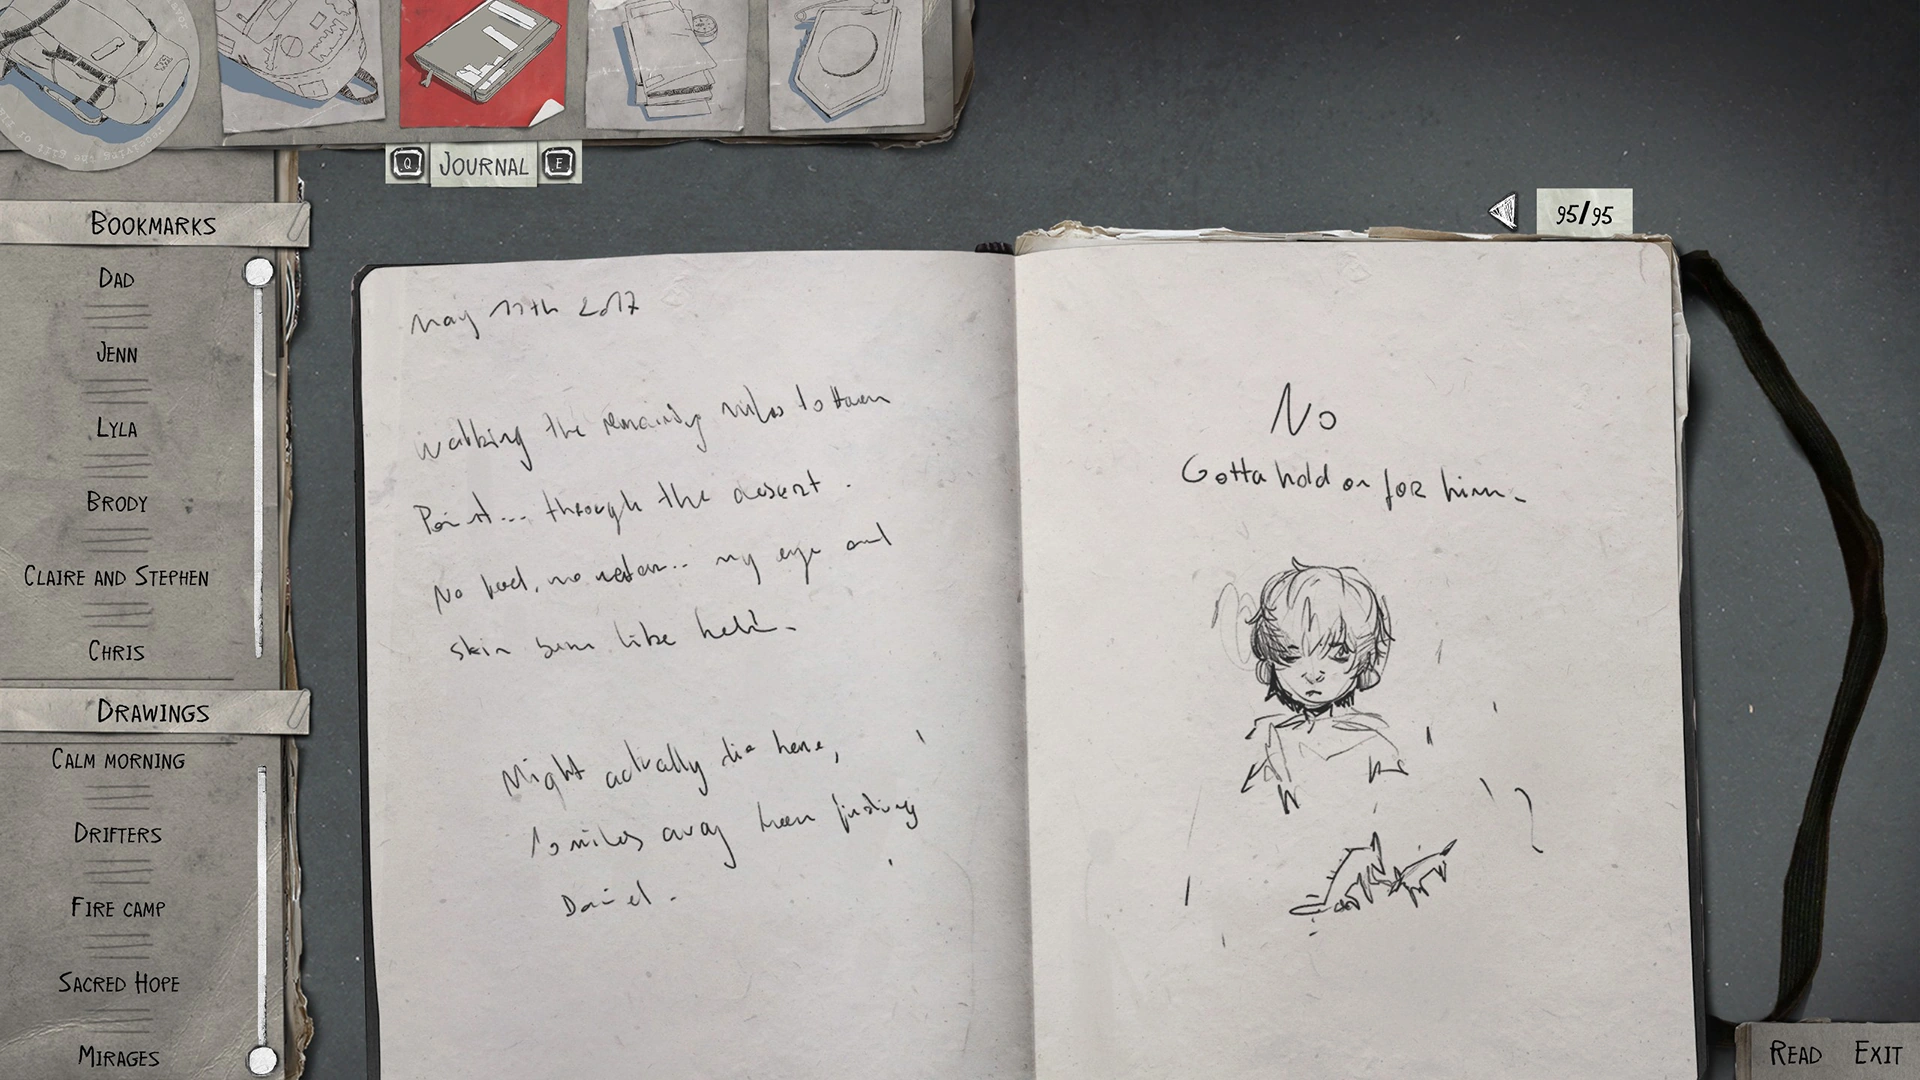 Q JOURNAL E
95/95
BOOKMARKS
DAD
JENN
LYLA
BRODY
CLAIRE AND STEPHEN
CHRIS
DRAWINGS
CALM MORNING
DRIFTERS
FIRE CAMP
SACRED HOPE
MIRAGES
May 11th 2017
Walking the remaining miles to Haven
Point... through the desert.
No food, no water... my eye and
skin burn like hell.
Might actually die here,
10 miles away from finding
Daniel.
No
Gotta hold on for him.
READ EXIT